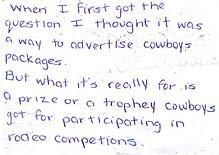 When I first got the
question I thought it was
a way to advertise cowboys
packages.
But what it's really for is
a prize or a trophey cowboys
got for participating in
rodeo competions.